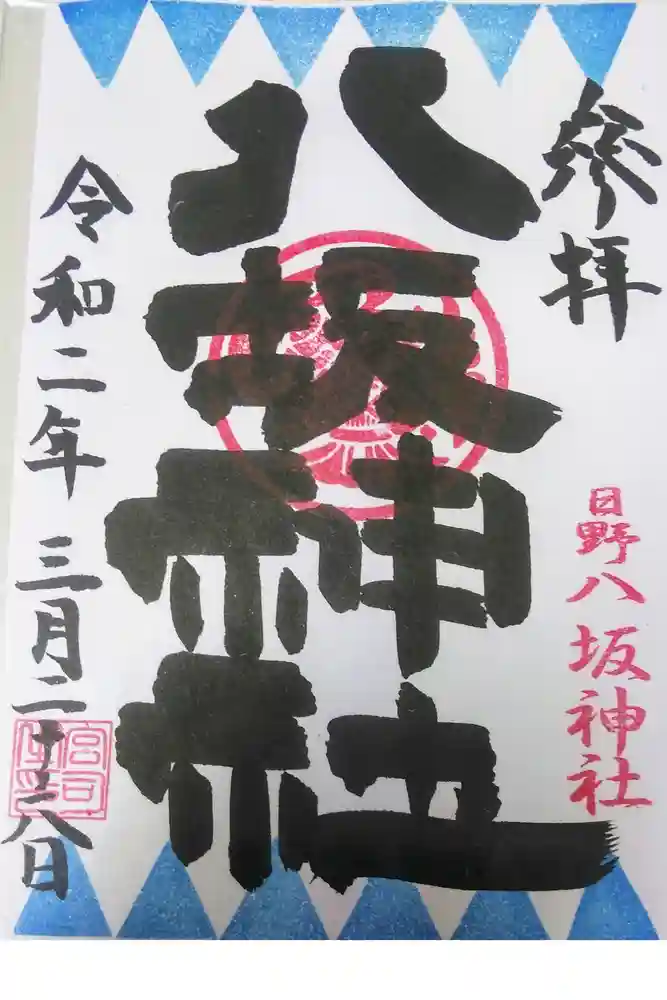 参拝
日野八坂神社
八坂神社
令和二年 三月二十八日
宮司